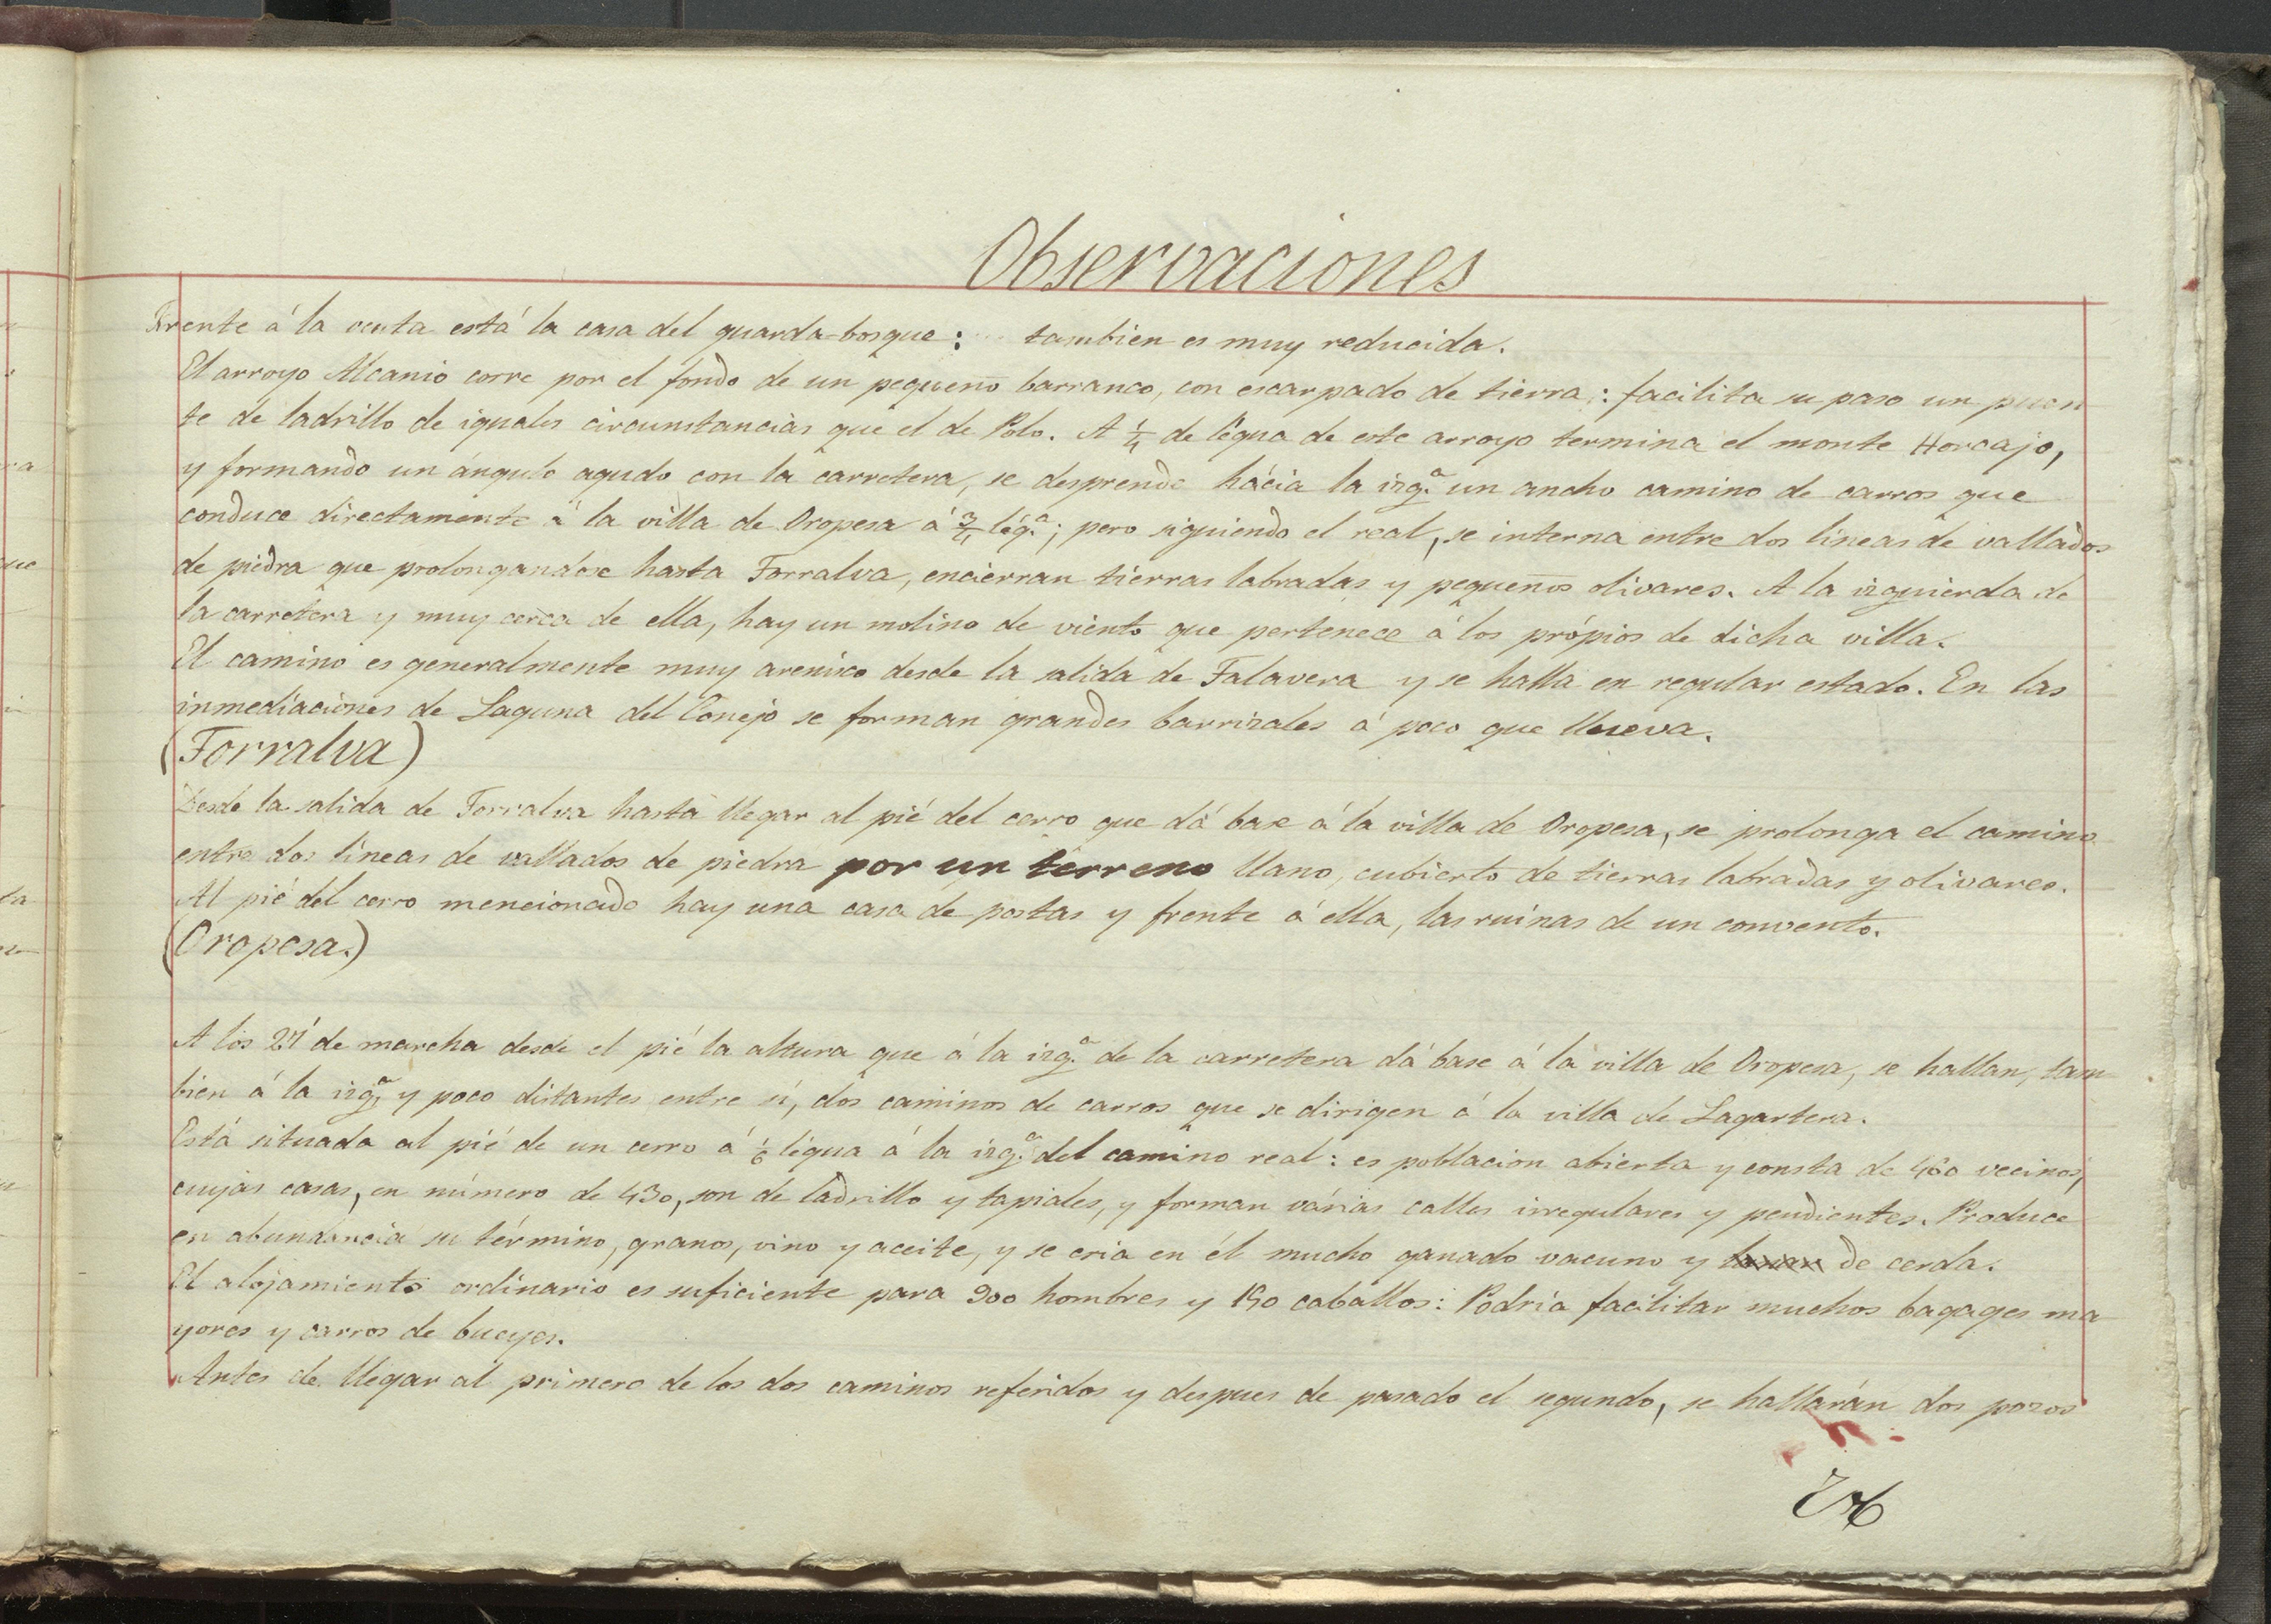 Observaciones
Frente á la venta está la casa del guarda-bosque: tambien es muy reducida.
El arroyo Alcanio corre por el fondo de un pequeño barranco, con escarpado de tierra: facilita su paso un puen
te de ladrillo de iguales circunstancias que el de Polo. A 1/4 de légua de este arroyo termina el monte Horcajo,
y formando un ángulo agudo con la carretera, se desprende hácia la izq.ª un ancho camino de carros que
conduce directamente á la villa de Oropesa á 3/4 lég.ª; pero siguiendo el real, se interna entre dos lineas de vallados
de piedra que prolongandose hasta Torralva, encierran tierras labradas y pequeños olivares. A la izquierda de
la carretera y muy cerca de ella, hay un molino de viento que pertenece á los própios de dicha villa.
El camino es generalmente muy arenisco desde la salida de Talavera y se halla en regular estado. En las
inmediaciones de Laguna del Conejo se forman grandes barrizales á poco que llueva.
(Torralva)
Desde la salida de Torralva hasta llegar al pié del cerro que dá base á la villa de Oropesa, se prolonga el camino
entre dos lineas de vallados de piedra por un terreno llano, cubierto de tierras labradas y olivares.
Al pié del cerro mencionado hay una casa de postas y frente á ella, las ruinas de un convento.
(Oropesa.)
A los 27' de marcha desde el pié la altura que á la izq.ª de la carretera dá base á la villa de Oropesa, se hallan, tam
bien á la izq.ª y poco distantes entre sí, dos caminos de carros que se dirigen á la villa de Lagartera.
Está situada al pié de un cerro á 1/6 légua á la izq.ª del camino real: es poblacion abierta y consta de 460 vecinos,
cuyas casas, en número de 430, son de ladrillo y tapiales, y forman várias calles irregulares y pendientes. Produce
en abundancia su término, granos, vino y aceite, y se cria en él mucho ganado vacuno y de cerda.
El alojamiento ordinario es suficiente para 900 hombres y 150 caballos: Podría facilitar muchos bagages ma
yores y carros de bueyes.
Antes de llegar al primero de los dos caminos referidos y despues de pasado el segundo, se hallarán dos pozos